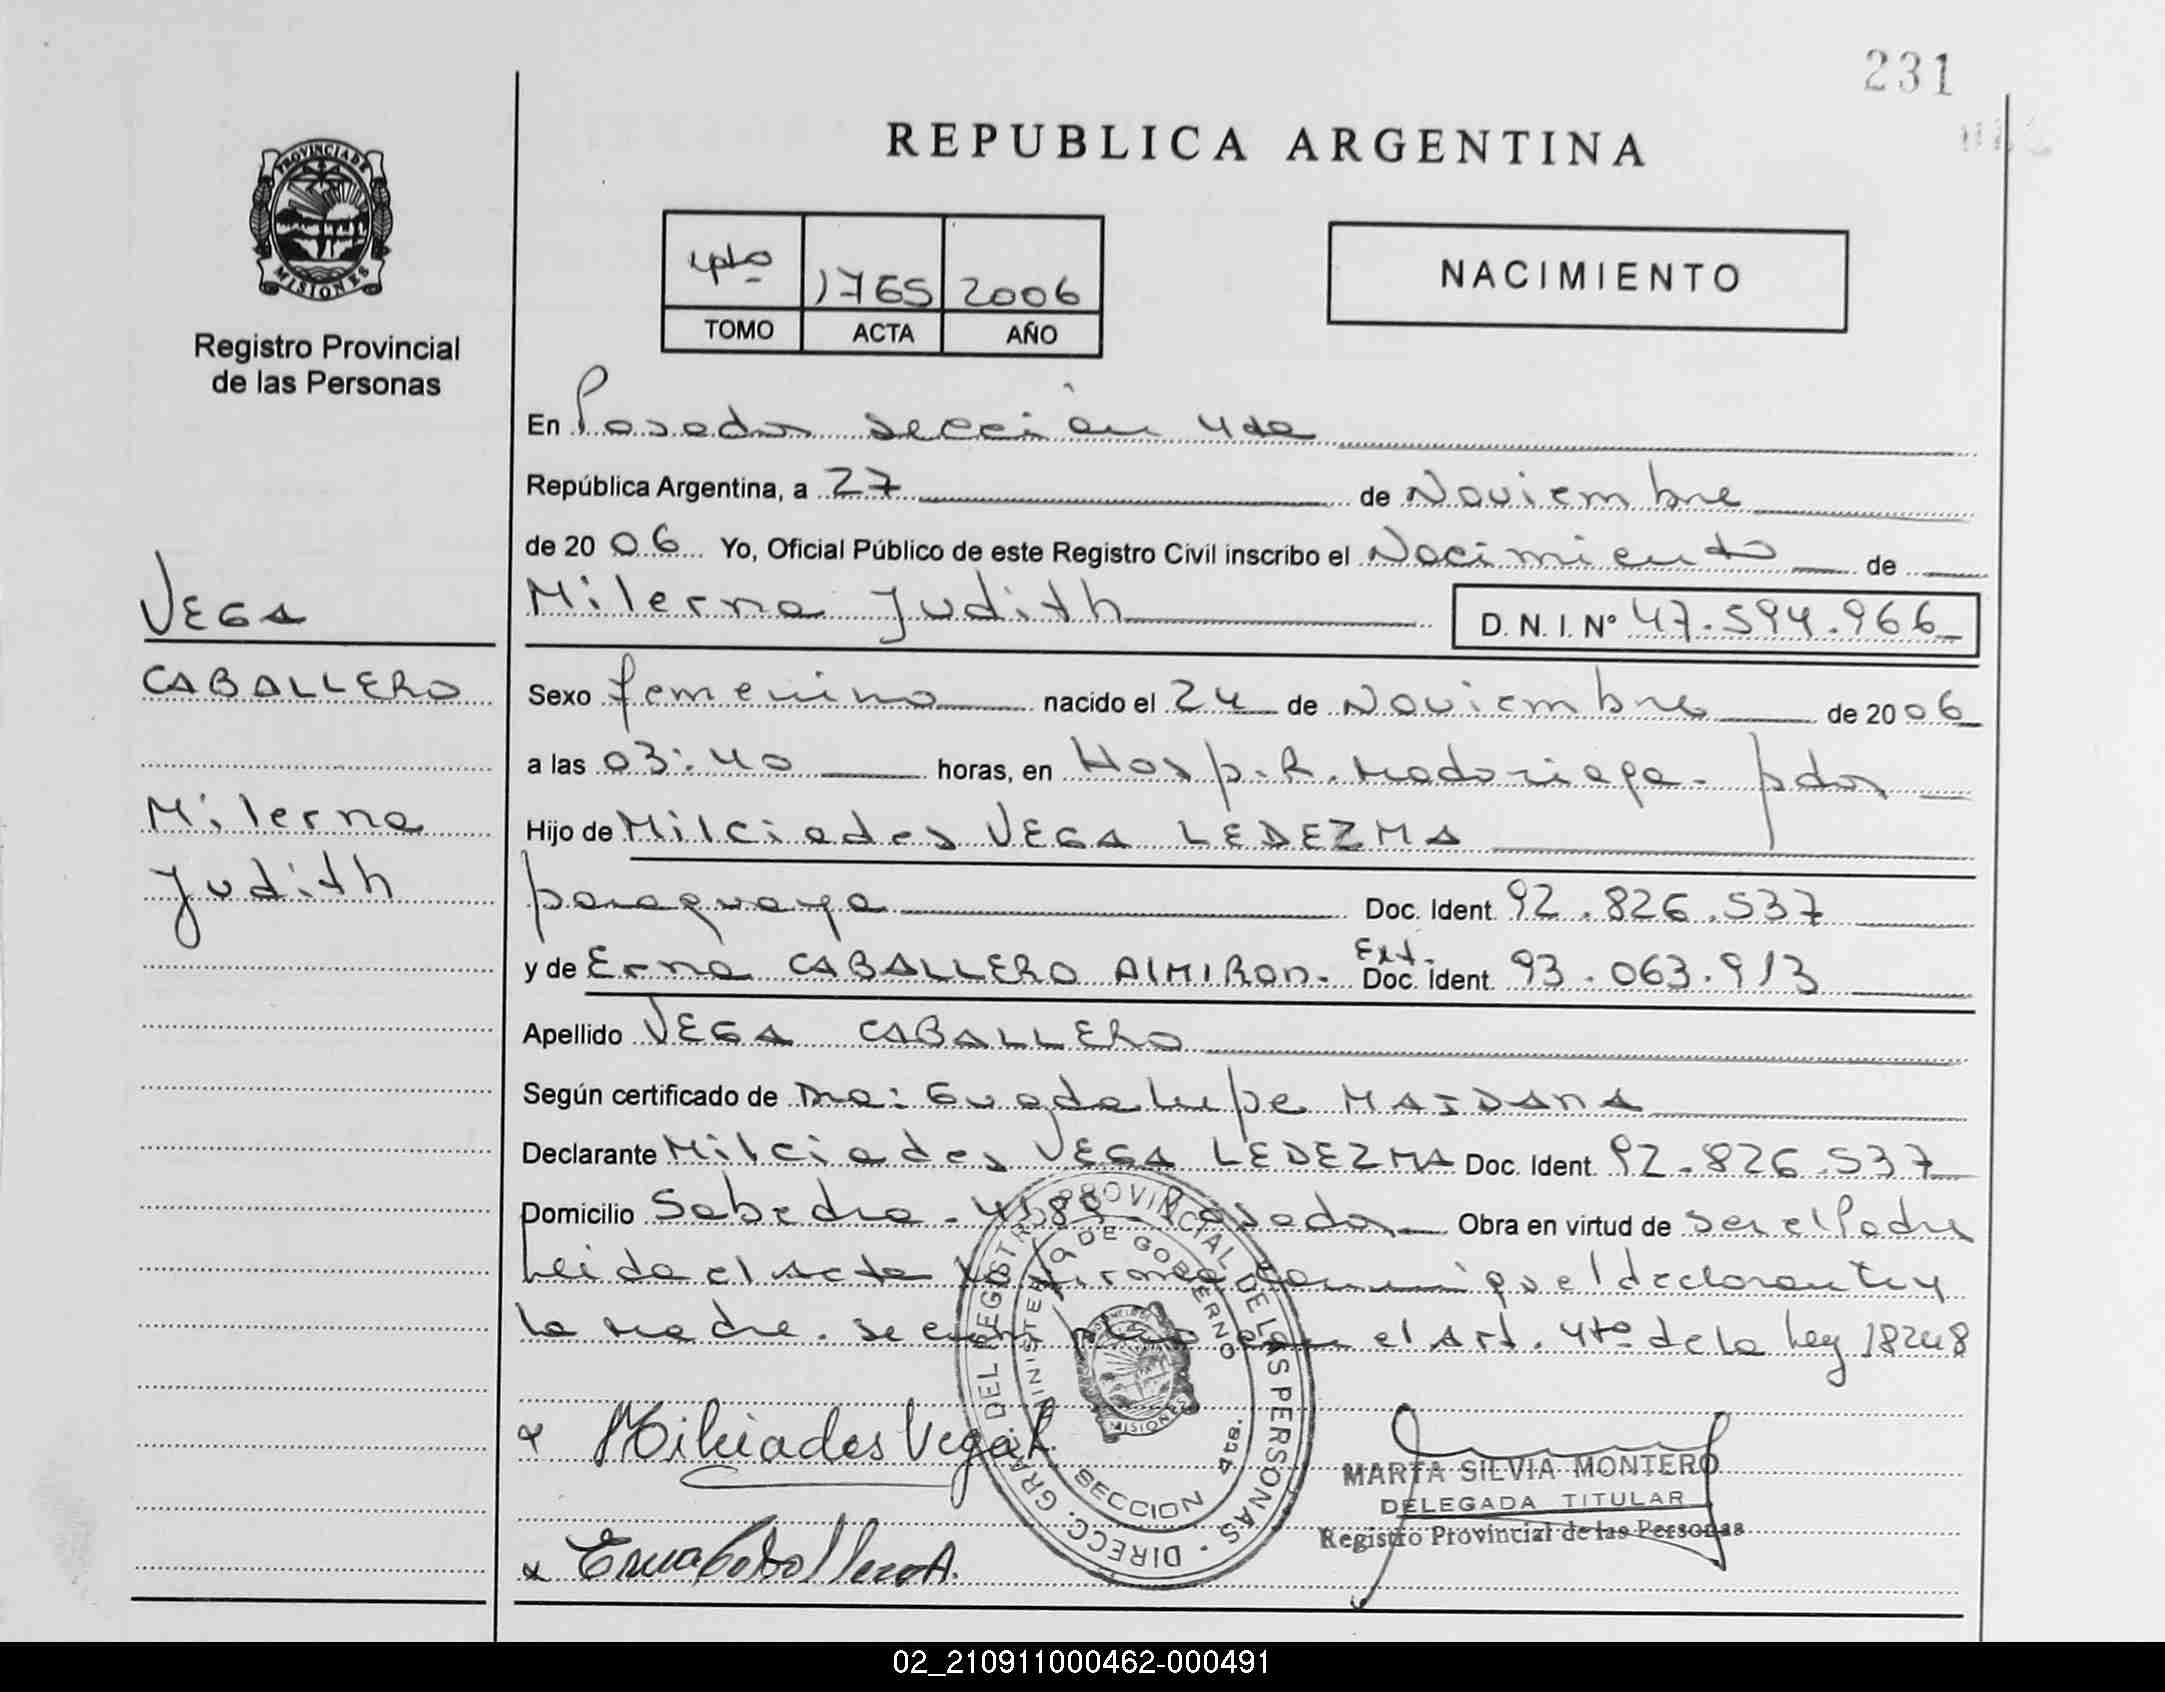 231
REPUBLICA ARGENTINA
PROVINCIA DE MISIONES
Registro Provincial
de las Personas
4to 1765 2006
TOMO ACTA AÑO
NACIMIENTO
En Posadas sección 4ta
República Argentina, a 27 de Noviembre
de 2006 Yo, Oficial Público de este Registro Civil inscribo el Nacimiento de
Milerna Judith D. N. I. Nº 47.594.966
VEGA
CABALLERO
Milerna
Judith
Sexo femenino nacido el 24 de Noviembre de 2006
a las 03:40 horas, en Hosp. R. Madariaga - pdas
Hijo de Milciades VEGA LEDEZMA
paraguaya Doc. Ident. 92.826.537
y de Erna CABALLERO AlMIRON. Ext. Doc. Ident. 93.063.913
Apellido VEGA CABALLERO
Según certificado de Dra: Guadalupe MAIDANA
Declarante Milciades VEGA LEDEZMA Doc. Ident. 92.826.537
Domicilio Sabedra - 4189 - Posadas Obra en virtud de ser el Padre
Leida el Acta la firman conmigo el declarante y
la madre. se el Art. 4to de la Ley 18248
Milciades Vega L.
Erna Caballero A.
DIRECC. GRAL. DEL REGISTRO PROVINCIAL DE LAS PERSONAS
MINISTERIO DE GOBIERNO
MISIONES
SECCION 4ta.
MARTA SILVIA MONTERO
DELEGADA TITULAR
Registro Provincial de las Personas
02_210911000462-000491